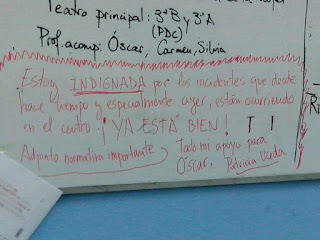 Teatro principal: 3ºB y 3ºA
(PDC)
Prof. acomp: Óscar, Carmen, Silvia
Estoy INDIGNADA por los incidentes que desde
hace tiempo y especialmente ayer, están ocurriendo
en el centro. ¡YA ESTÁ BIEN!
Adjunto normativa importante
Todo mi apoyo para
Óscar. Patricia